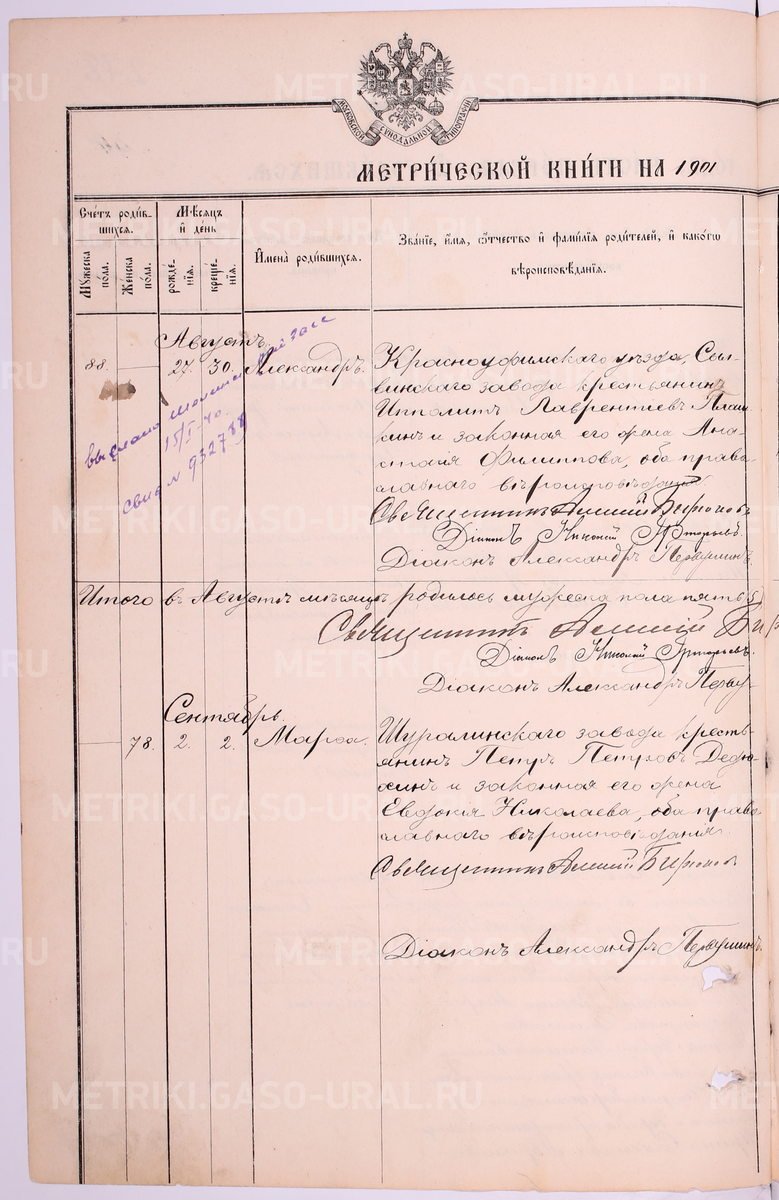 МОСКОВСКОЙ СѴНОДАЛЬНОЙ ТИПОГРАФІИ
МЕТРИ́ЧЕСКОЙ КНИ́ГИ НА 1901
Сче́тъ роди́в-
шихся.
Мꙋ́жеска
по́ла.
Же́нска
по́ла.
М҃ѣсяцъ
и҆ де́нь
рожде́-
нїя.
креще́-
нїя.
И҆мена̀ роди́вшихся.
Зва́нїе, и҆́мя, ѻ҆́тчество и҆ фами́лїя роди́телей, и҆ како́гѡ
вѣроисповѣ́данїя.
Августъ.
88. — 27. 30. Александръ.
Красноуфимскаго уѣзда, Сыл-
винскаго завода крестьянинъ
Ипполитъ Лаврентіевъ
и законная его жена Ана-
стасія Филиппова, оба право-
славнаго вѣроисповѣданія
Священникъ Алексій Бирюковъ
Діаконъ Николай Григорьевъ.
Діаконъ Александръ Первушинъ.
выслано
15/I-40.
свид № 932788
Итого въ Августѣ мѣсяцѣ родилось мужеска пола пять (5)
Священникъ Алексій Би
Діаконъ Николай Григорьевъ.
Діаконъ Александръ Перву
Сентябрь.
— 78. 2. 2. Марѳа.
Шуралинскаго завода кресть-
янинъ Петръ Петровъ Дедю-
хинъ и законная его жена
Евдокія Николаева, оба право-
славнаго вѣроисповѣданія.
Священникъ Алексій Бирюковъ
Діаконъ Александръ Первушинъ.
METRIKI.GASO-URAL.RU